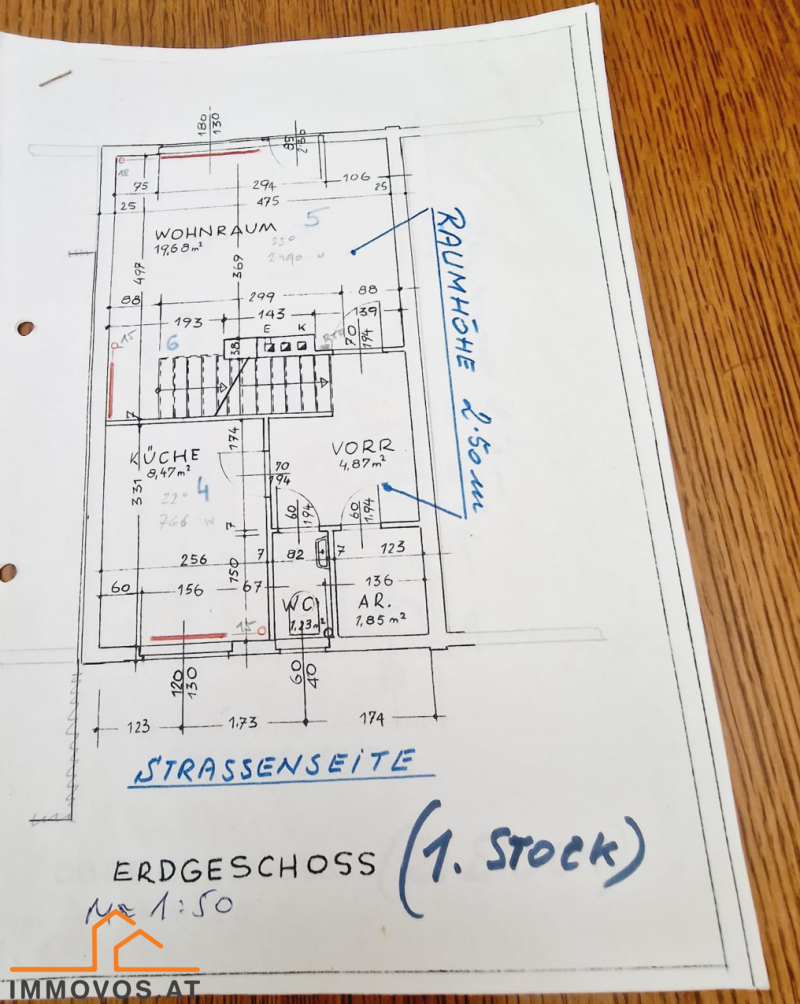 180
130
85
18
75
294
106
25
25
475
WOHNRAUM
5
19,68 m²
22°
2490 W
497
369
RAUMHÖHE 2.50 m
88
299
88
193
143
139
E K
70
194
6
15
38
7
KÜCHE
8,47 m²
174
4
VORR
4,87 m²
70
194
22°
766 W
331
60
194
60
1,94
7
256
7
82
7
123
150
60
156
67
136
WC
1,23 m²
AR.
1,85 m²
15
120
130
60
40
123
1,73
174
STRASSENSEITE
ERDGESCHOSS (1. STOCK)
M= 1:50
IMMOVOS.AT